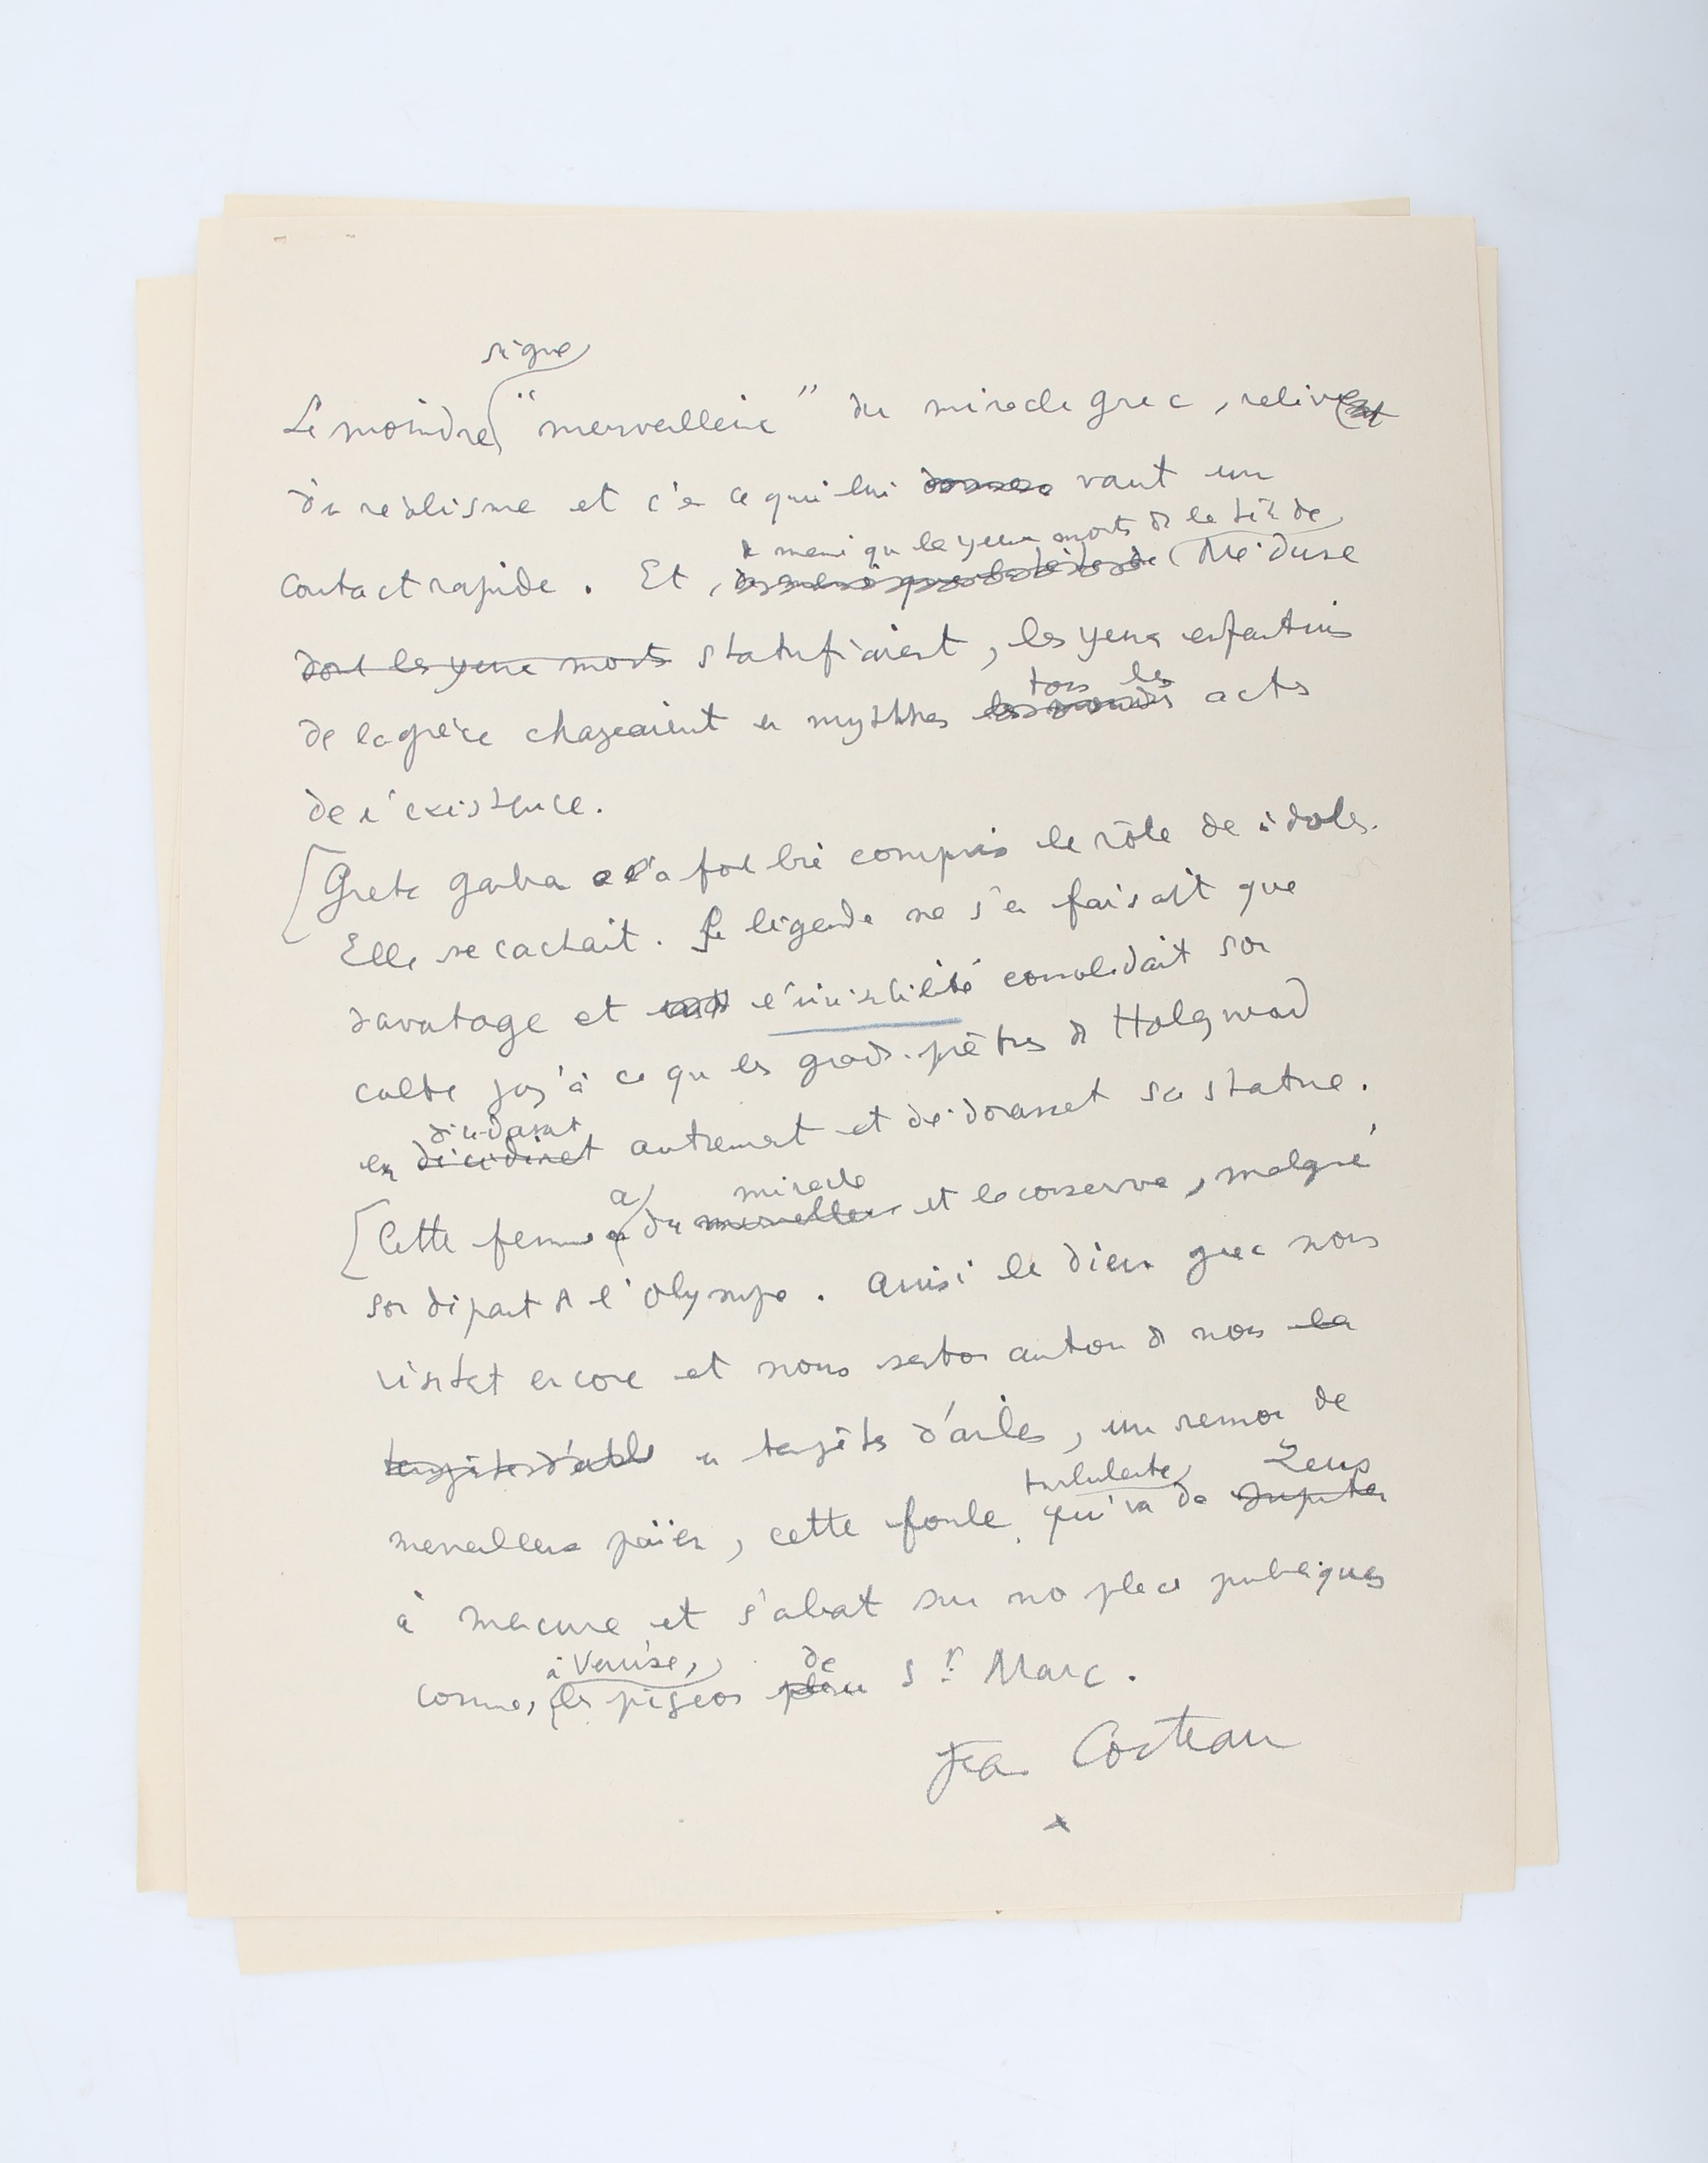 signe
Le moindre "merveilleux" du miracle grec, relève
du réalisme et c'e ce qui lui vaut un
de même que les yeux morts de la tête de
contact rapide. Et, Méduse
dont les yeux morts statufiaient, les yeux enfantins
tous les
de la grèce changeaient en mythes actes
de l'existence.
Greta Garbo a compris le rôle de idoles.
Elle se cachait. Sa légende ne s'en faisait que
davantage et l'invisibilité consolidait son
culte jusqu'à ce que les grands-prêtres de Hollywood
décidassent
en décidèrent autrement et dédorassent sa statue.
a miracle
Cette femme du merveilleux et le conserve, malgré
son départ de l'Olympe. Ainsi les dieux grecs nous
visitent encore et nous sentons autour de nous la
tempête d'ailes en tempêtes d'ailes, un remous de
turbulente Zeus
merveilleux païen, cette foule qui va de Jupiter
à Mercure et s'abat sur nos places publiques
à Venise, de
comme, les pigeons place St Marc.
Jean Cocteau